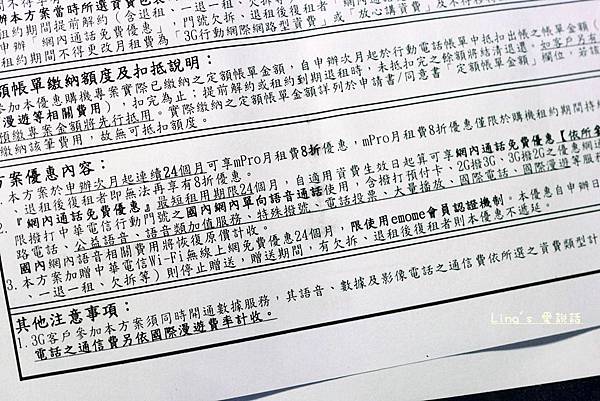 辦本方案當時所選資費
租約期間提前解約（含退租、一退一租、欠拆
申辦「網內通話免費優惠」門號欠拆、退租後復租者
租約期間不得更改月租費為「3G行動網際網路型資費」或「放心講資費」及
額帳單繳納額度及扣抵說明：
參加本優惠購機專案實際已繳納之定額帳單金額，自申辦次月起於行動電話帳單中抵扣出帳之帳單金額（
漫遊等相關費用），扣完為止；提前解約或租約到期退租時，未抵扣完之餘額將結清退還，如客戶另有
預繳專案金額將先行抵用。實際繳納之定額帳單金額詳列於申請書/同意書「定額帳單金額」欄位，若該
繳納該筆費用，故無可抵扣額度。
方案優惠內容：
本方案於申辦次月起連續24個月可享mPro月租費8折優惠，mPro月租費8折優惠僅限於購機租約期間
、退租後復租者即無法再享有8折優惠。
2.『網內通話免費優惠』最短租用期限24個月，自適用資費生效日起算可享網內通話免費優惠【依所
限撥打中華電信行動門號之國內網內單向語音通話使用，含撥打預付卡、2G撥3G、3G撥2G之優惠網
路電話、公益語音、語音類加值服務、特殊撥號、電話投票、大量播放、國際電話、國際漫遊等服務
國內網內語音相關費用將恢復原價計收。
3.本方案加贈中華電信Wi-Fi無線上網免費優惠24個月，限使用emome會員認證機制。本優惠自申辦日
、一退一租、欠拆等）則停止贈送，贈送期間，有欠拆、退租後復租者則本優惠不遞延。
其他注意事項：
1.3G客戶參加本方案須同時開通數據服務，其語音、數據及影像電話之通信費依所選之資費類型計
電話之通信費另依國際漫遊費率計收。
Ling's 愛說話